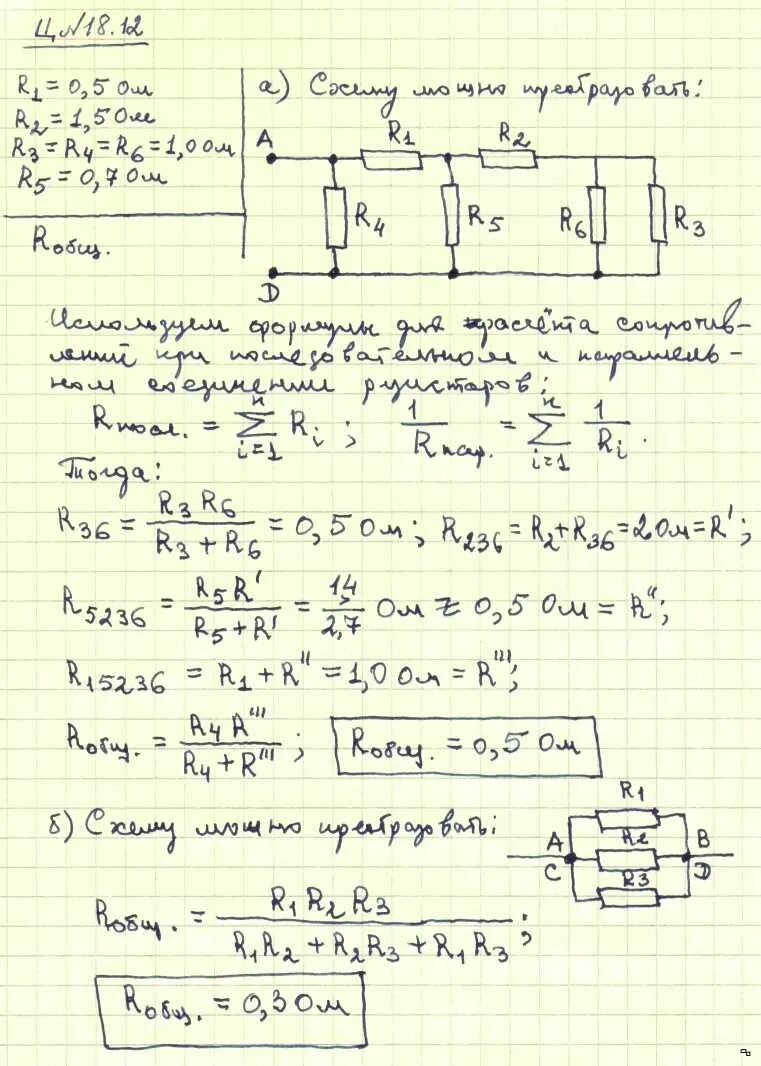 Ц № 18.12
R₁ = 0,5 Ом
R₂ = 1,5 Ом
R₃ = R₄ = R₆ = 1,0 Ом
R₅ = 0,7 Ом
Rобщ.
а) Схему можно преобразовать:
A
R₁
R₂
R₄
R₅
R₆
R₃
D
Используем формулы для расчёта сопротив-
лений при последовательном и параллель-
ном соединении резисторов:
Rпосл. = ∑ⁿᵢ₌₁ Rᵢ ; 1/Rпар. = ∑ⁿᵢ₌₁ 1/Rᵢ .
Тогда:
R₃₆ = R₃R₆/(R₃ + R₆) = 0,5 Ом; R₂₃₆ = R₂ + R₃₆ = 2 Ом = R';
R₅₂₃₆ = R₅R'/(R₅ + R') = 1,4/2,7 Ом ≈ 0,5 Ом = R'';
R₁₅₂₃₆ = R₁ + R'' = 1,0 Ом = R''';
Rобщ. = R₄R'''/(R₄ + R''') ; Rобщ. = 0,5 Ом
б) Схему можно преобразовать:
R₁
A R₂ B
C R₃ D
Rобщ. = R₁R₂R₃/(R₁R₂ + R₂R₃ + R₁R₃) ;
Rобщ. = 0,3 Ом